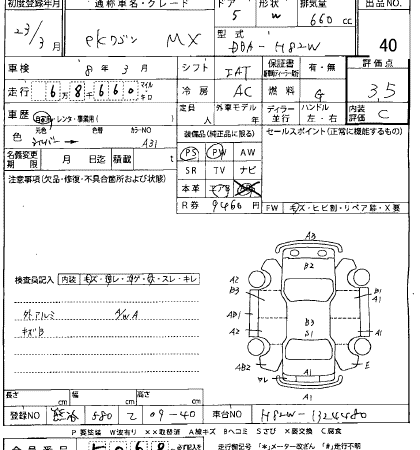 初度登録年月 通称車名・グレード ドア 形状 排気量 出品NO
23/3 ekワゴン MX 5 W 660 cc
型式 DBA-H82W 40
車検 8年 3月 シフト IAT 保証書 有・無 評価点
走行 6万8660 マイル キロ 冷房 AC 燃料 G 3.5
車歴 自家用・レンタ・事業用( ) 定員 人 外車モデル ディーラー 並行 ハンドル 左・右 内装 C
色 元色 色替 カラーNO 装備品(純正品に限る) セールスポイント(正常に機能するもの)
シルバー A31
名義変更期限 月 日迄 積載 t PS PW AW
SR TV ナビ
注意事項(欠品・修復・不具合箇所および状態) 本革 エアB
R券 9460円 FW キズ・ヒビ割・リペア跡・X要
検査員記入 内装 キズ・ヨレ・コゲ・穴・スレ・キレ
外アルミ
キズB
A3
B2
A2 B1
B3 A1
AB1 B3 A1
A2 S1 A1
AB2 E
マレ A1
長さ cm 幅 cm 高さ cm
登録NO 580 て 09-40 車台NO H82W-1324480
P要塗装 W波有り XX取替済 A線キズ Bヘコミ Sさび X要交換 C腐食
会員番号 走行欄記号 「*」メーター改ざん 「#」走行不明